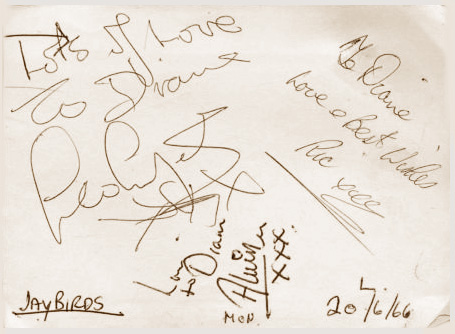 Lots of Love
To Diane
Leo Lyons
X
To Diane
Love & Best Wishes
Ric xxx
Luv
to Diane
Alvin Lee
XXX.
MON.
JAYBIRDS.
20/6/66